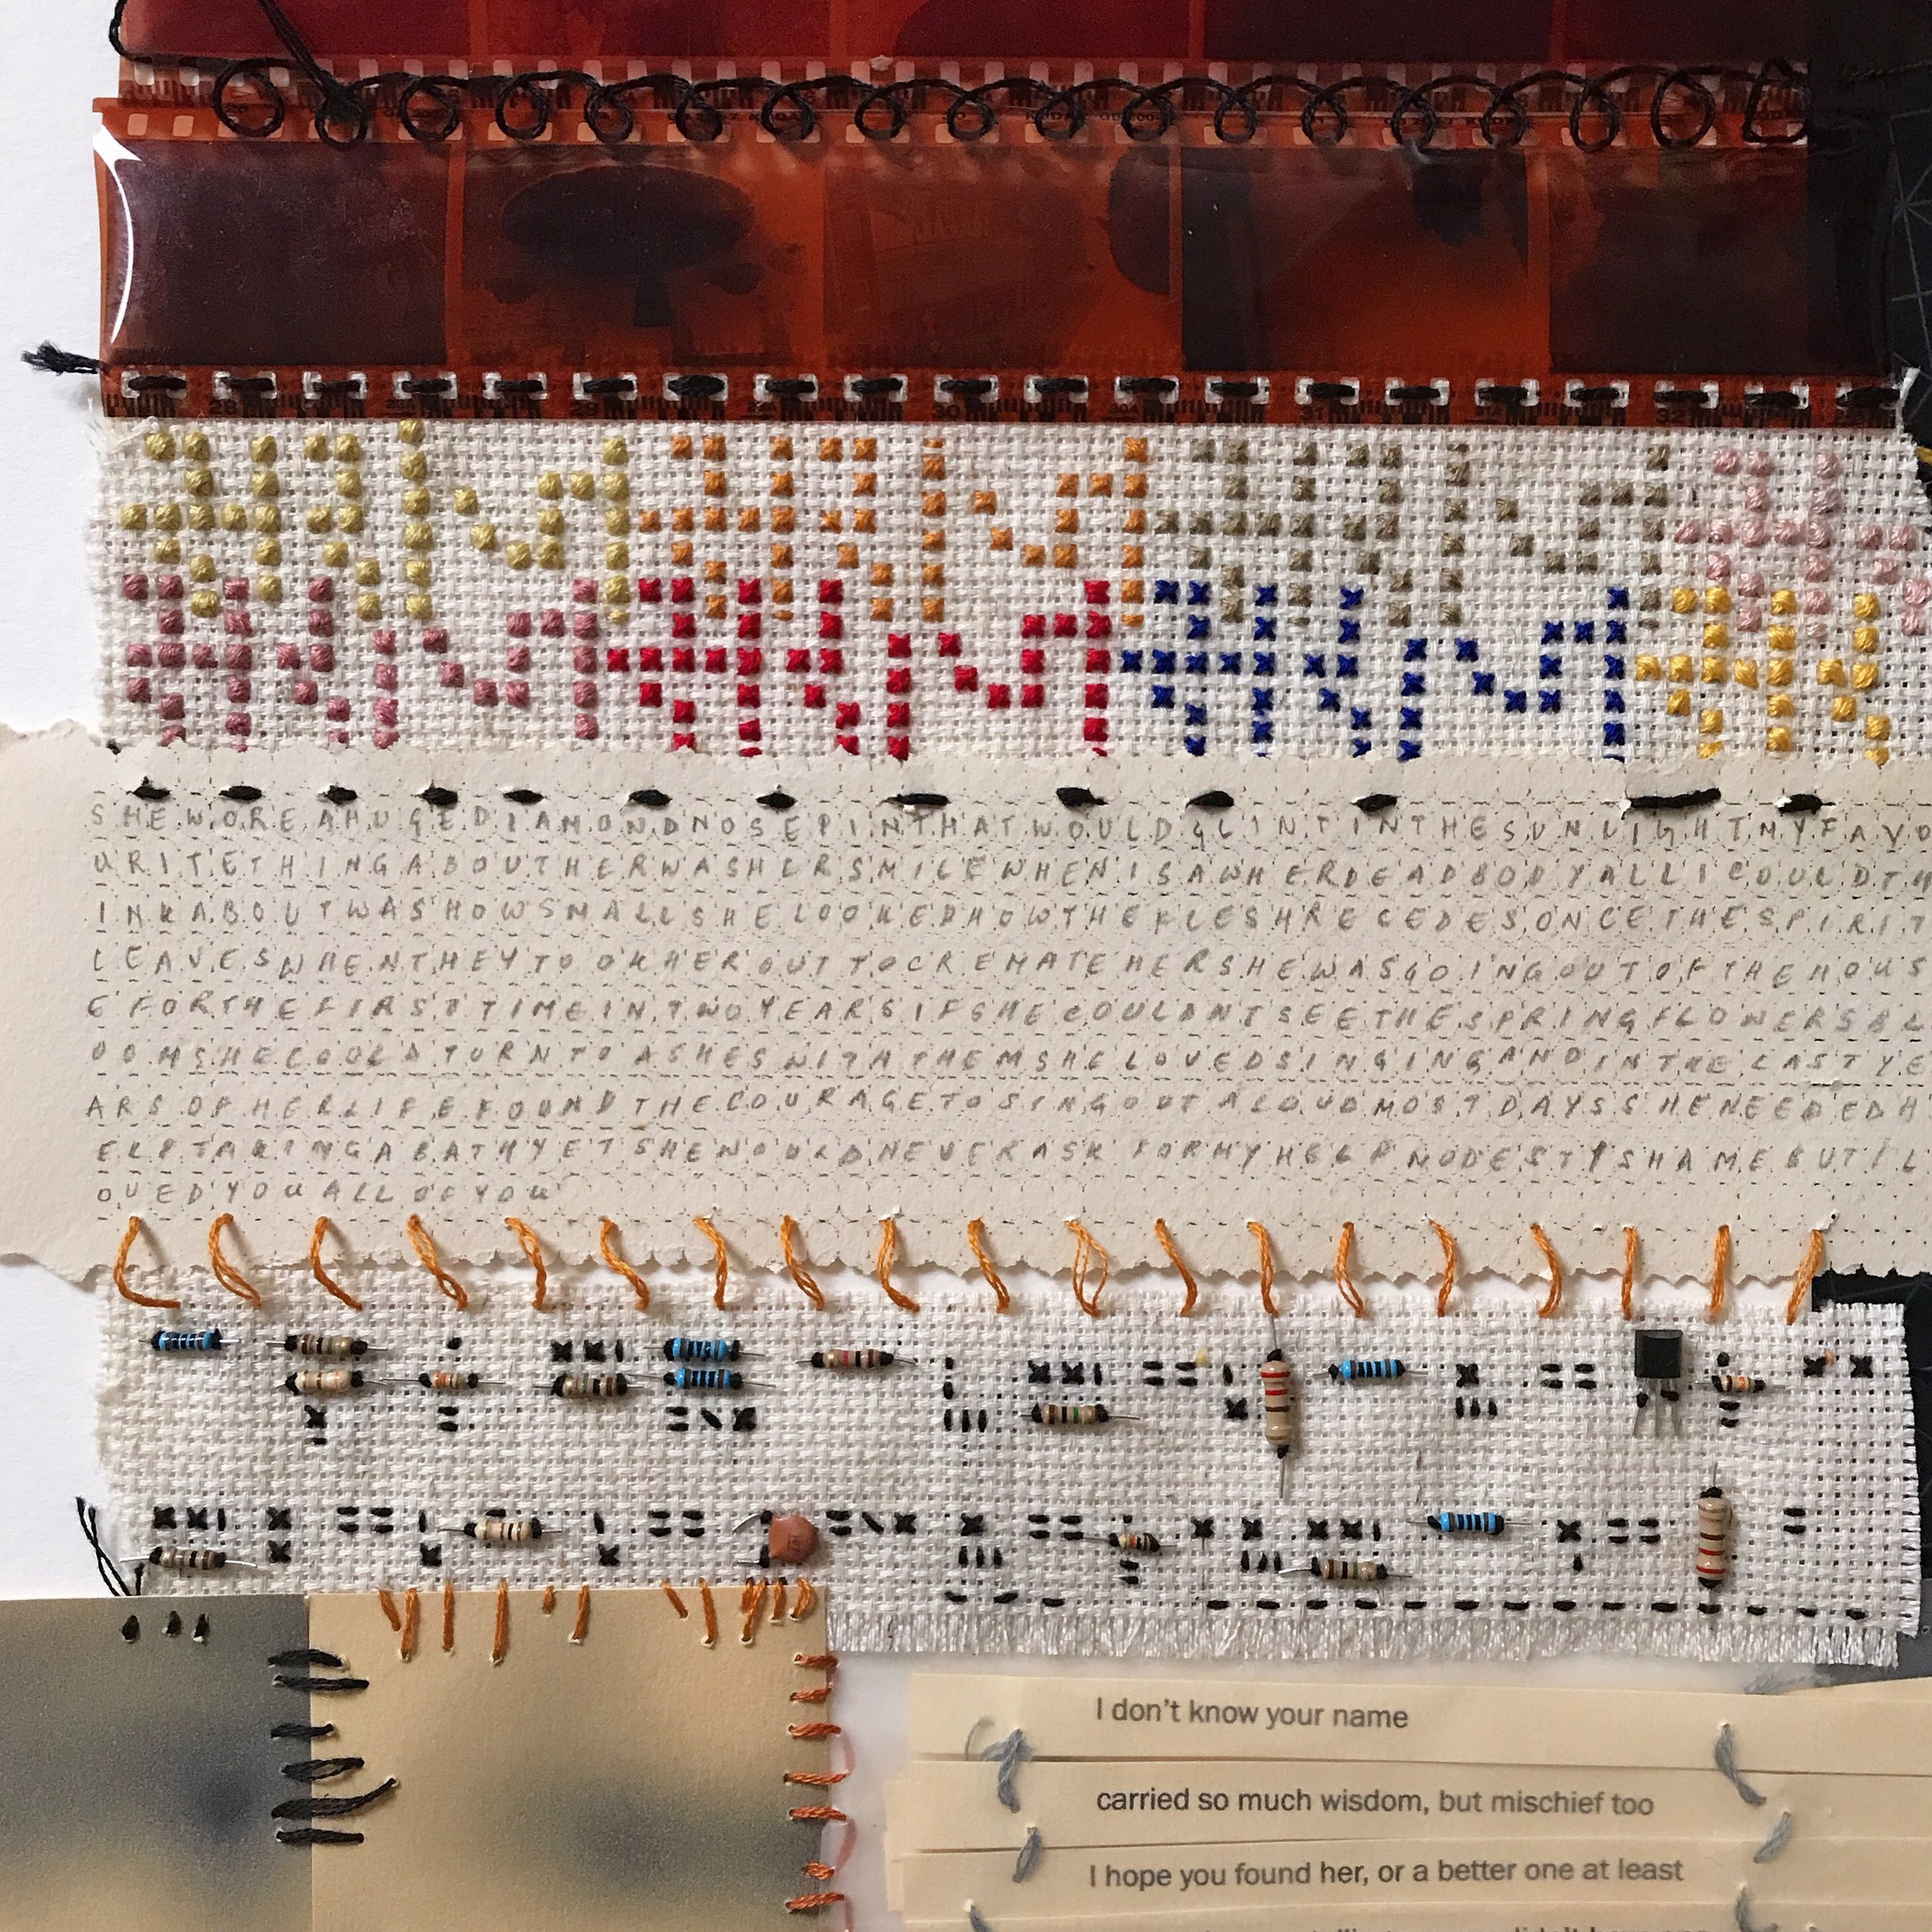 28 29 30 30A 31 31A 32
SHEWOREAHUGEDIAMONDNOSEPINTHATWOULDGLINTINTHESUNLIGHTMYFAVO
URITETHINGABOUTHERWASHERSMILEWHENISAWHERDEADBODYALLICOULDTH
INKABOUTWASHOWSMALLSHELOOKEDHOWTHEFLESHRECEDESONCETHESPIRIT
LEAVESWHENTHEYTOOKHEROUTTOCREMATEHERSHEWASGOINGOUTOFTHEHOUS
EFORTHEFIRSTTIMEINTWOYEARSIFSHECOULDNTSEETHESPRINGFLOWERSBL
OOMSHECOULDTURNTOASHESWITHTHEMSHELOVEDSINGINGANDINTHELASTYE
ARSOFHERLIFEFOUNDTHECOURAGETOSINGOUTALOUDMOSTDAYSSHENEEDEDH
ELPTAKINGABATHYETSHEWOULDNEVERASKFORMYHELPMODESTYSHAMEBUTIL
OVEDYOUALLOFYOU
I don't know your name
carried so much wisdom, but mischief too
I hope you found her, or a better one at least